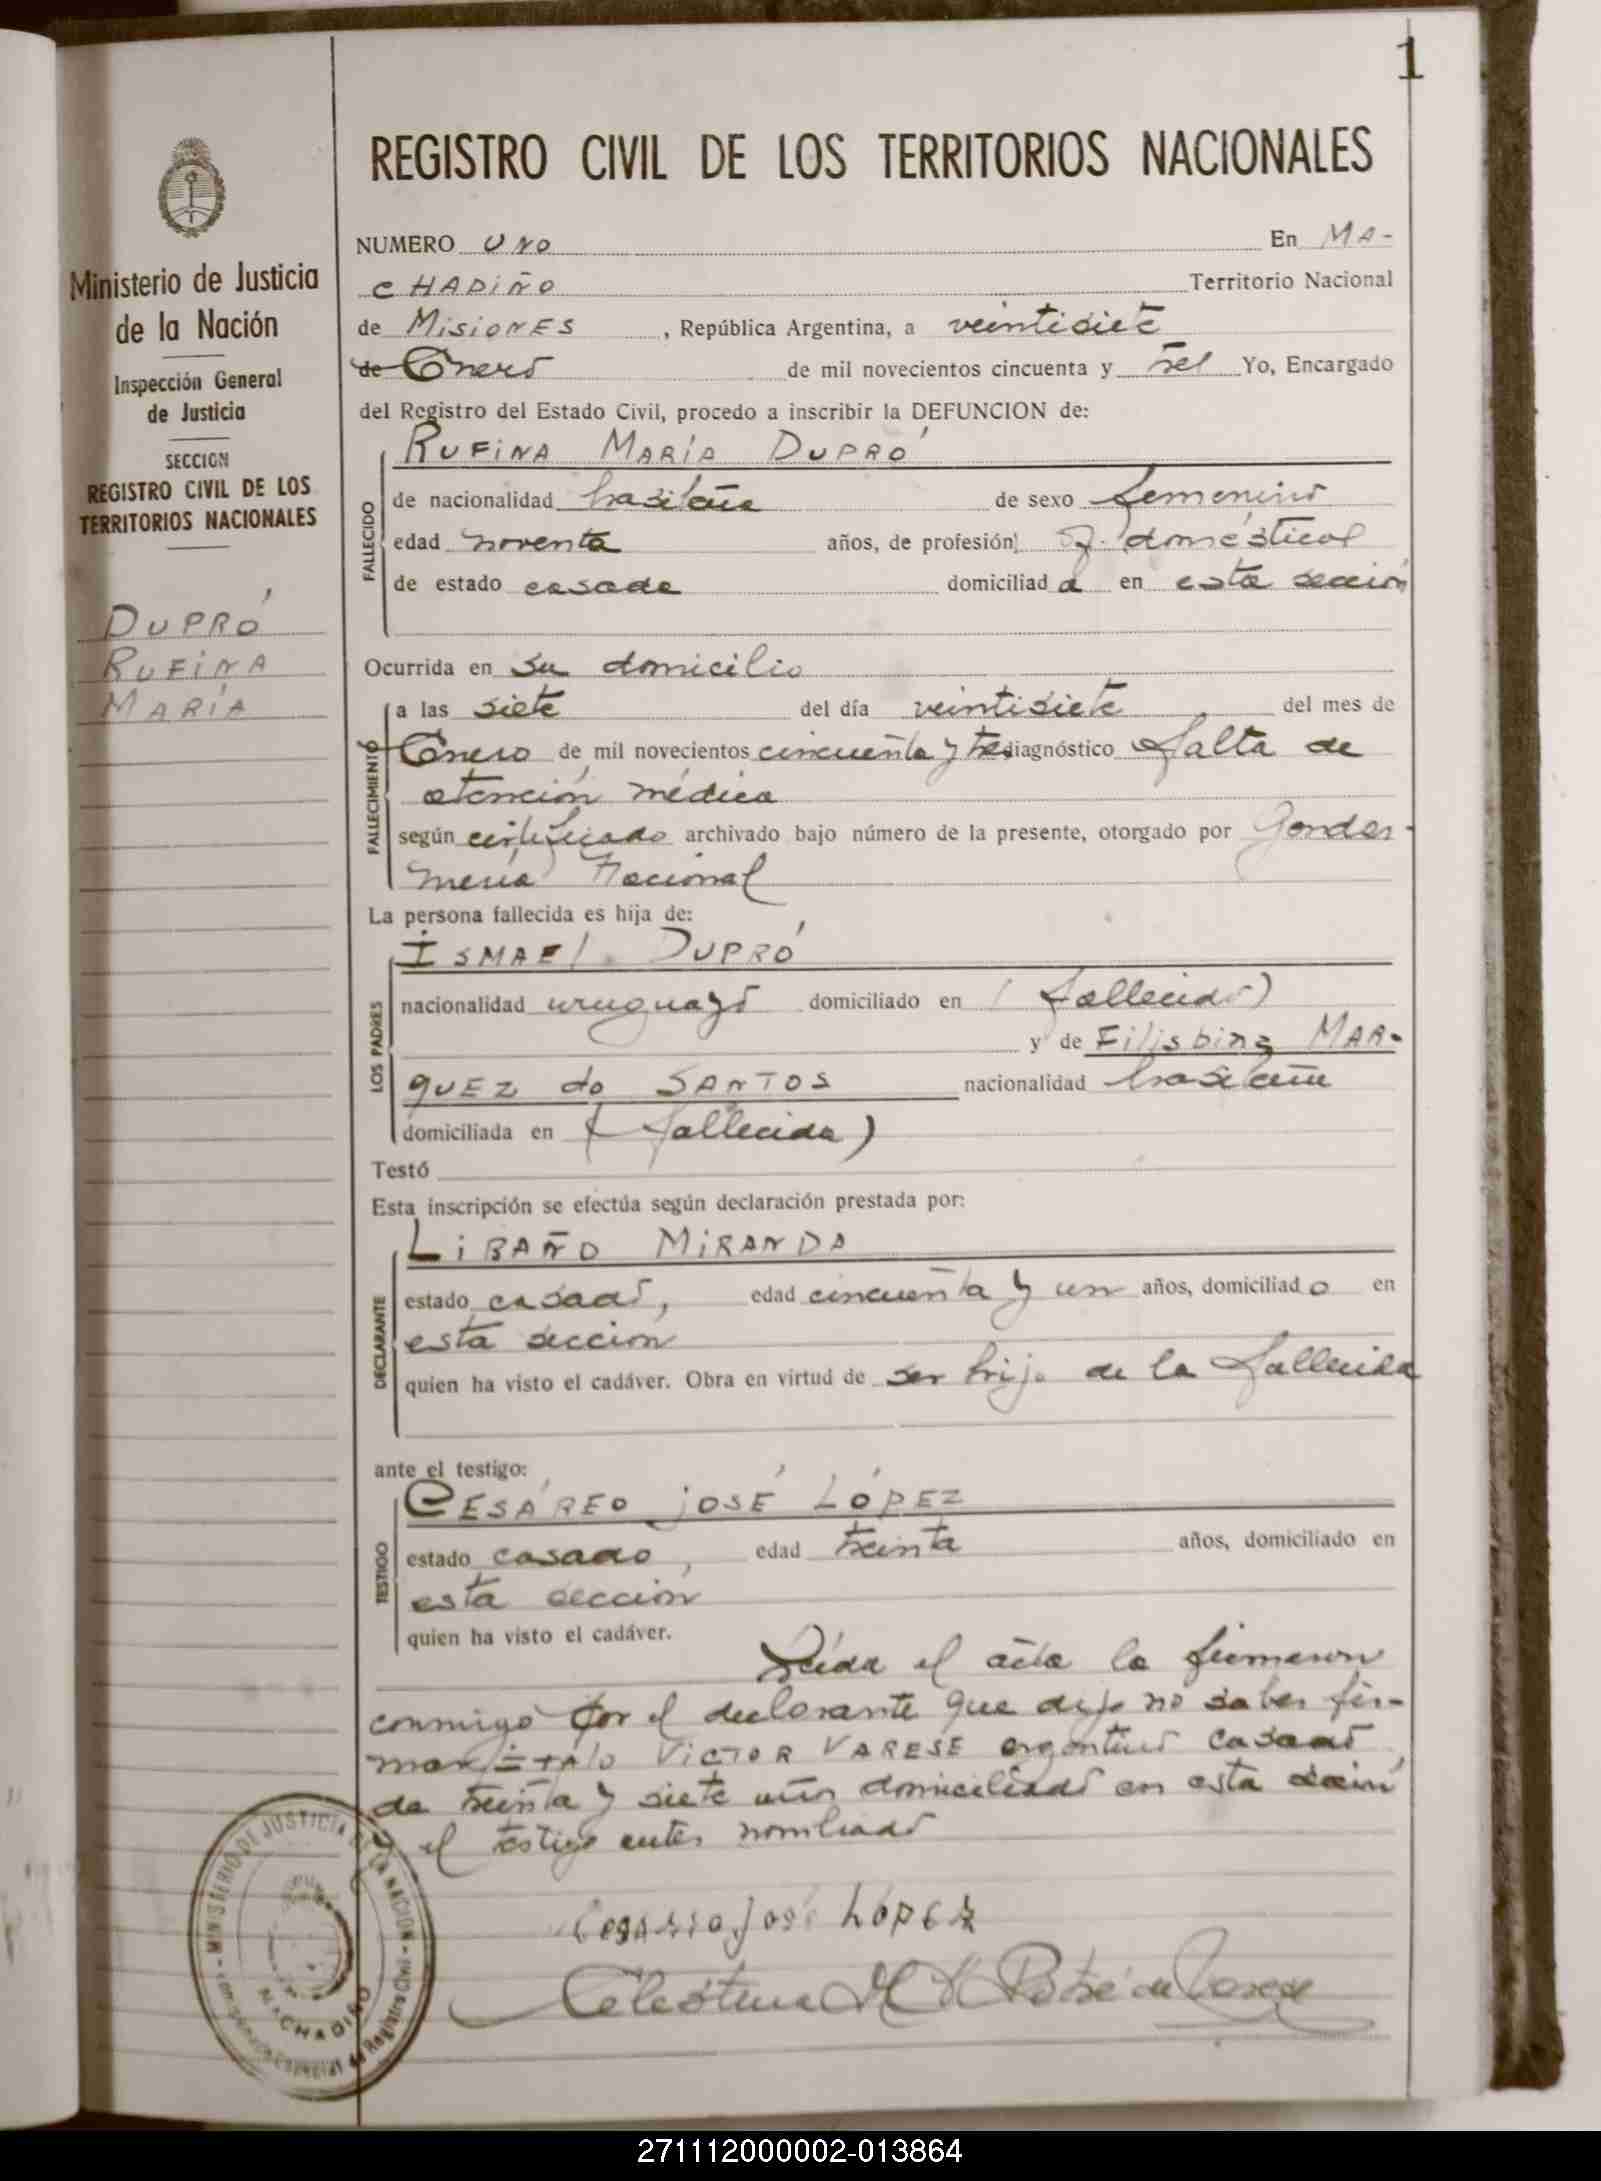 1
REGISTRO CIVIL DE LOS TERRITORIOS NACIONALES
Ministerio de Justicia
de la Nación
Inspección General
de Justicia
SECCION
REGISTRO CIVIL DE LOS
TERRITORIOS NACIONALES
DUPRÓ
RUFINA
MARÍA
NUMERO UNO En MA-
CHADIÑO Territorio Nacional
de MISIONES, República Argentina, a veintisiete
de Enero de mil novecientos cincuenta y tres Yo, Encargado
del Registro del Estado Civil, procedo a inscribir la DEFUNCION de:
RUFINA MARÍA DUPRÓ
FALLECIDO
de nacionalidad brasileña de sexo femenino
edad noventa años, de profesión q. domésticos
de estado casada domiciliada en esta sección
Ocurrida en su domicilio
FALLECIMIENTO
a las siete del día veintisiete del mes de
Enero de mil novecientos cincuenta y tres diagnóstico falta de
atención médica
según certificado archivado bajo número de la presente, otorgado por Gendar-
mería Nacional
La persona fallecida es hija de:
ISMAEL DUPRÓ
LOS PADRES
nacionalidad uruguayo domiciliado en (fallecido)
y de Filisbina MAR-
QUEZ do SANTOS nacionalidad brasileña
domiciliada en (fallecida)
Testó
Esta inscripción se efectúa según declaración prestada por:
LIBAÑO MIRANDA
DECLARANTE
estado casado, edad cincuenta y un años, domiciliado en
esta sección
quien ha visto el cadáver. Obra en virtud de ser hijo de la fallecida
ante el testigo:
CESÁREO JOSÉ LÓPEZ
TESTIGO
estado casado, edad treinta años, domiciliado en
esta sección
quien ha visto el cadáver.
Leída el acta la firmaron
conmigo por el declarante que dijo no saber fir-
mar Italo VICTOR VARESE argentino casado
de treinta y siete años domiciliado en esta sección
y el testigo antes nombrado
Cesario José López
Celestina
MINISTERIO DE JUSTICIA DE LA NACION
MACHADIÑO
271112000002-013864